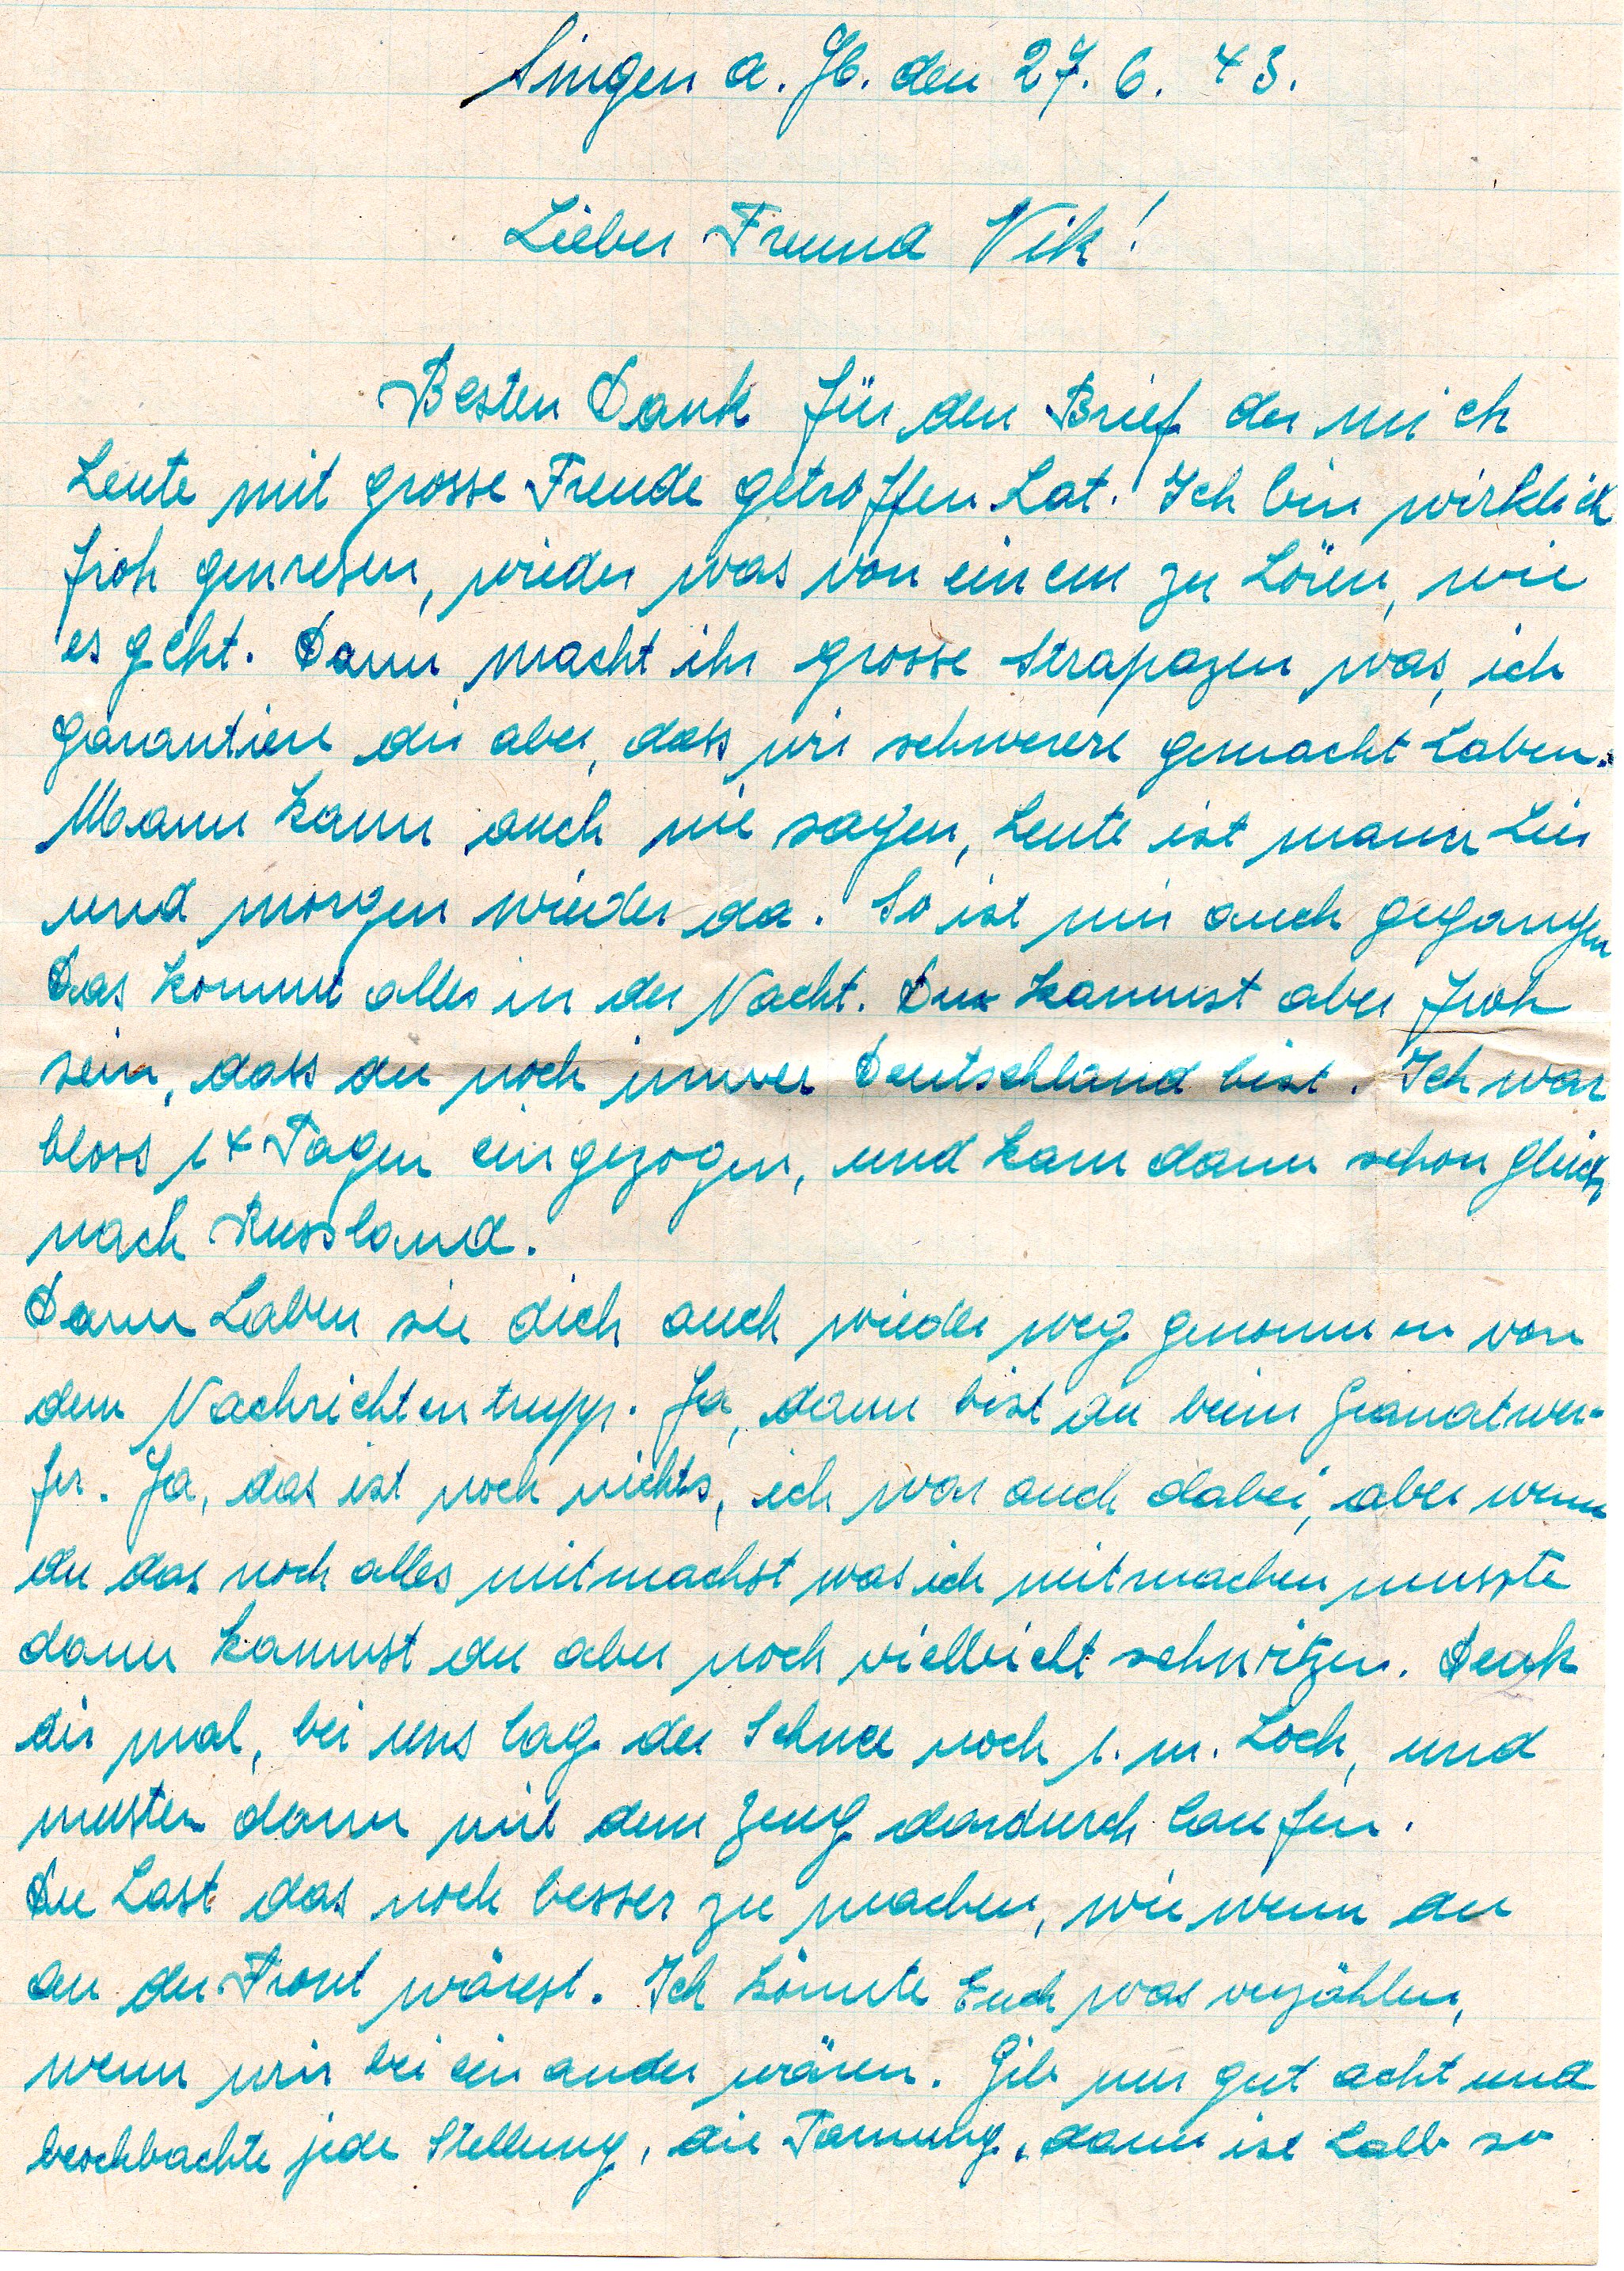 Singen a. H. den 27. 6. 43.
Lieber Freund Vik!
Besten Dank für den Brief der mich
heute mit grosse Freude getroffen hat. Ich bin wirklich
froh gewesen, wieder was von einem zu hören, wie
es geht. Dann macht ihr grosse Strapazen was, ich
garantiere dir aber, dass wir schwerere gemacht haben.
Mann kann auch nie sagen, heute ist mann hier
und morgen wieder da. So ist mir auch gegangen
Das kommt alles in der Nacht. Du kannst aber froh
sein, dass du noch immer Deutschland bist. Ich war
bloss 14 Tagen eingezogen, und kam dann schon gleich
nach Russland.
Dann haben sie dich auch wieder weg genommen von
dem Nachrichtentrupp. Ja, dann bist du beim Granatwer-
fer. Ja, das ist noch nichts, ich war auch dabei, aber wenn
du das noch alles mitmachst was ich mitmachen musste
dann kannst du aber noch vielleicht schwitzen. Denk
dir mal, bei uns lag der Schnee noch 1. m. hoch, und
musten dann mit dem Zeug dardurch laufen.
Du hast das noch besser zu machen, wie wenn du
an der Front wärest. Ich könnte Euch was verzählen,
wenn wir bei einander wären. Gib nur gut acht und
beochbachte jede Stellung, die Tarnung, dann ist halb so